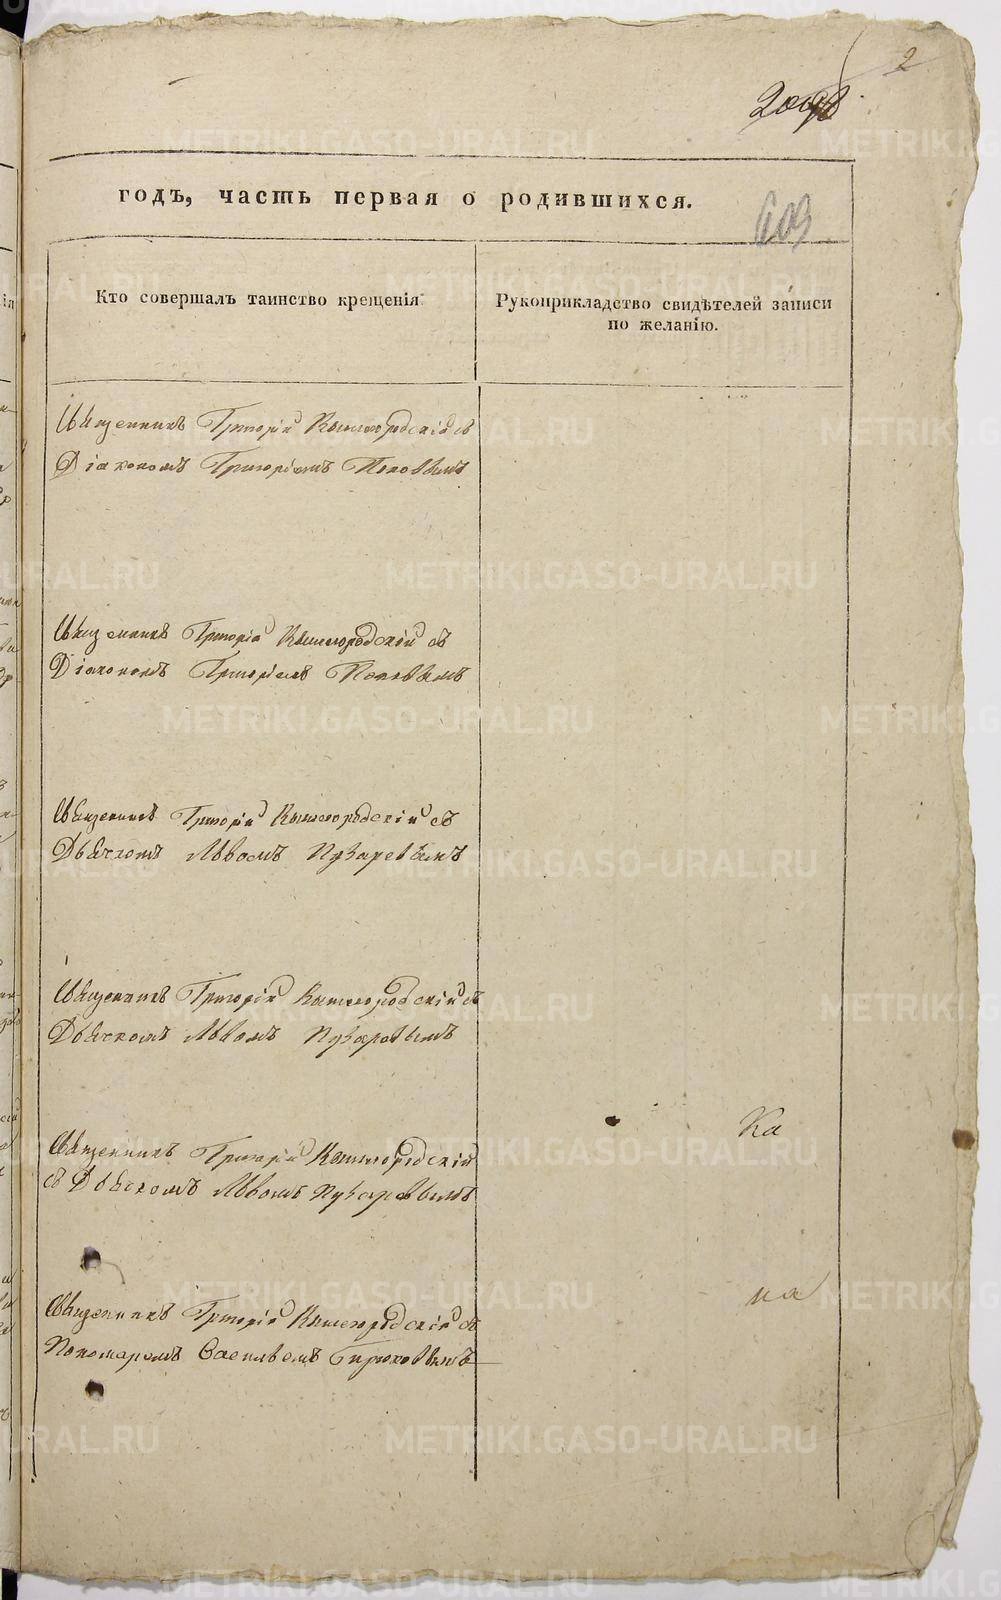 2
годъ, часть первая о родившихся.
603
Кто совершалъ таинство крещенія
Рукоприкладство свидѣтелей записи
по желанію.
Священникъ Григорій Вышегородскій съ
Діакономъ Григоріемъ Поповымъ
Священникъ Григорій Вышегородскій съ
Діакономъ Григоріемъ Поповымъ
Священникъ Григорій Вышегородскій съ
Дьячкомъ Львомъ Пузыревымъ
Священникъ Григорій Вышегородскій съ
Дьячкомъ Львомъ Пузыревымъ
Священникъ Григорій Вышегородскій
съ Дьячкомъ Львомъ Пузыревымъ
Ка
Священникъ Григорій Вышегородскій съ
на
Пономаремъ Васильемъ Бирюковымъ
METRIKI.GASO-URAL.RU